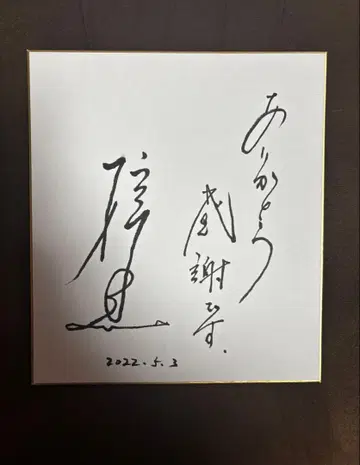 ありがとう
感謝です.
2022.5.3